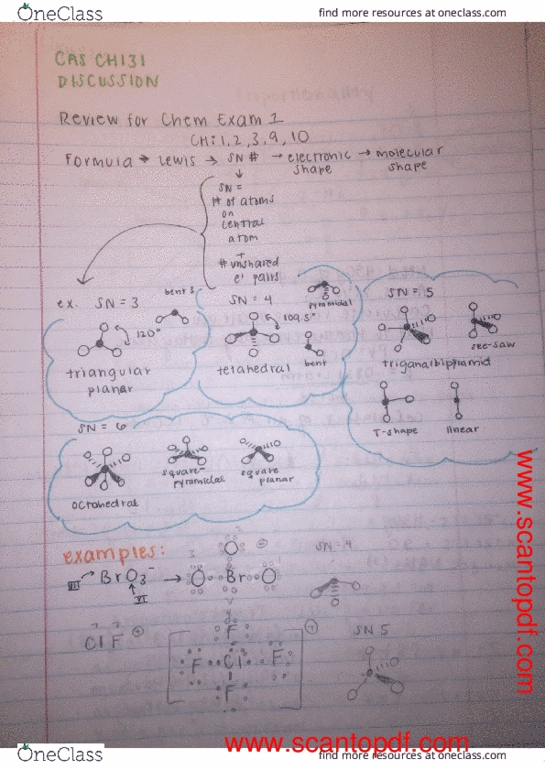 OneClass
find more resources at oneclass.com
CAS CH131
DISCUSSION
Review for Chem Exam 1
CH: 1, 2, 3, 9, 10
Formula → Lewis → SN # → electronic shape → molecular shape
SN =
# of atoms
on
central
atom
+
# unshared
e⁻ pairs
ex. SN = 3
bent
120°
triangular
planar
SN = 4
109.5°
pyramidal
bent
tetahedral
SN = 5
see-saw
triganalbipyramid
T-shape
linear
SN = 6
octohedral
square-
pyramidal
square
planar
examples:
VII
BrO₃⁻
VI
O Br O
O
SN = 4
Cl F
F
F Cl F
F
SN 5
www.scantopdf.com
www.scantopdf.com
OneClass
find more resources at oneclass.com